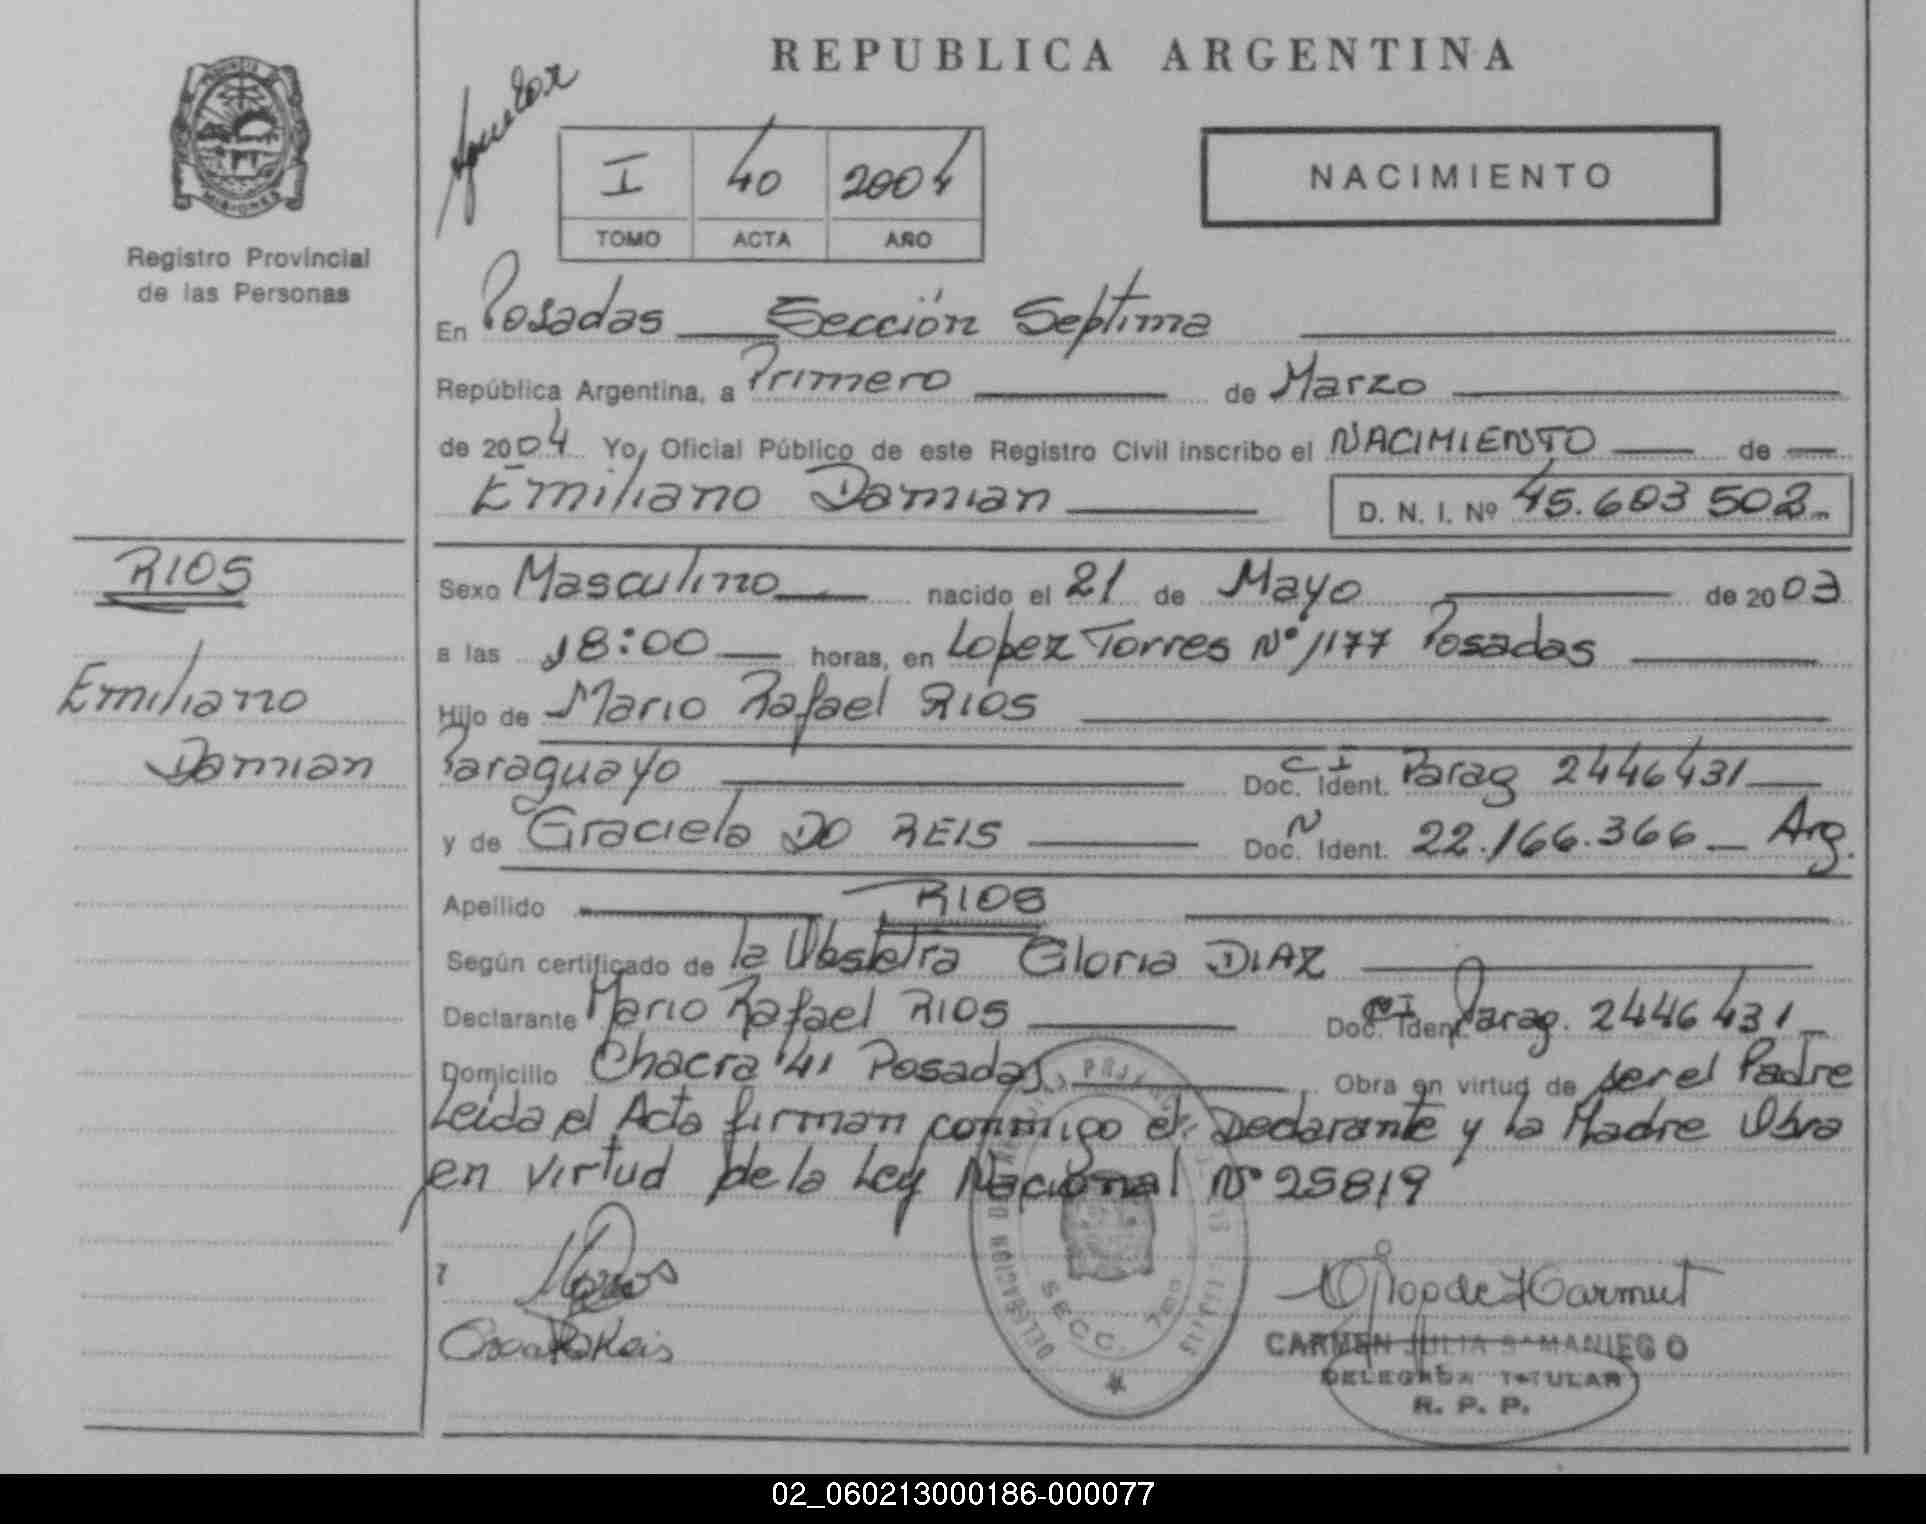 REPUBLICA ARGENTINA
MISIONES
Registro Provincial
de las Personas
I 40 2004
TOMO ACTA AÑO
NACIMIENTO
En Posadas Sección Septima
República Argentina, a Primero de Marzo
de 2004 Yo, Oficial Público de este Registro Civil inscribo el NACIMIENTO de
Emiliano Damian D. N. I. Nº 45.603 502
RIOS
Emiliano
Damian
Sexo Masculino nacido el 21 de Mayo de 2003
a las 18:00 horas, en Lopez Torres Nº 1177 Posadas
Hijo de Mario Rafael RIOS
Paraguayo Doc. Ident. C I Parag 2446431
y de Graciela DO REIS Doc. N Ident. 22.166.366 Arg.
Apellido RIOS
Según certificado de la Obstetra Gloria DIAZ
Declarante Mario Rafael RIOS Doc. Ident. CI Parag. 2446431
Domicilio Chacra 41 Posadas Obra en virtud de ser el Padre
Leida el Acta firman conmigo el Declarante y la Madre Obra
en virtud de la Ley Nacional Nº 25819
SECC. 7
CARMEN JULIA SAMANIEGO
DELEGADA TITULAR
R. P. P.
02_060213000186-000077